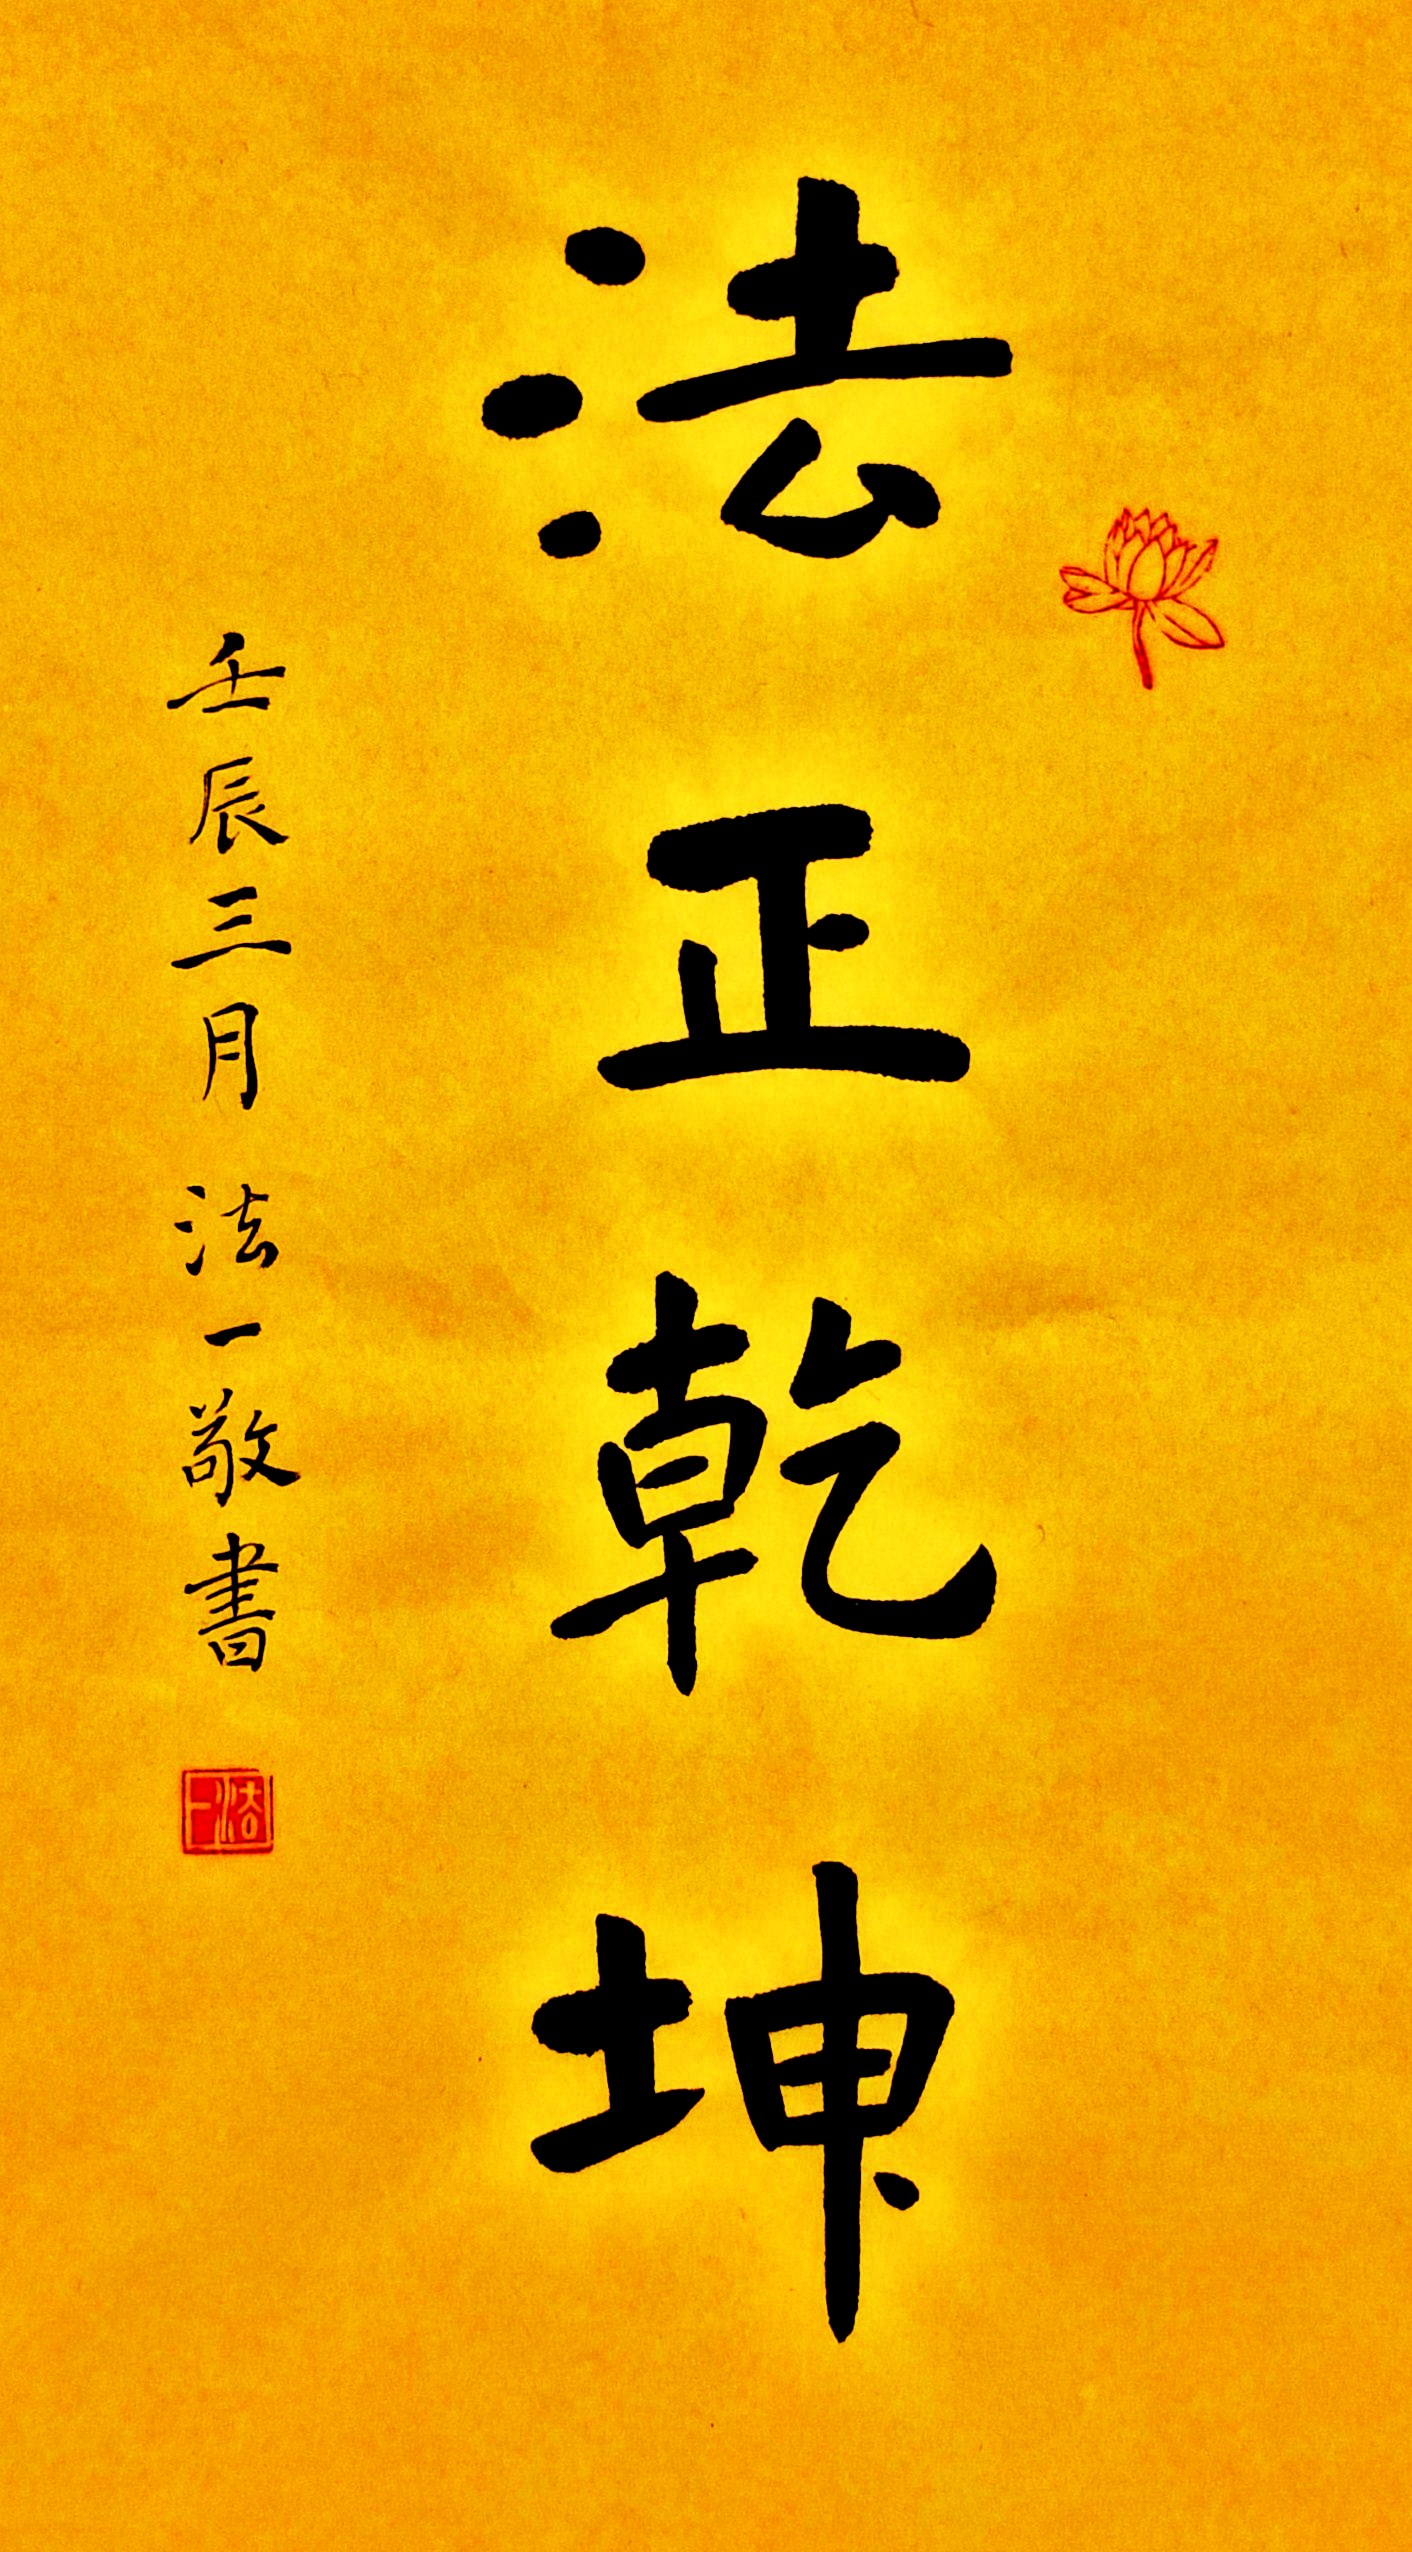 法正乾坤
壬辰三月 法一敬書
法一